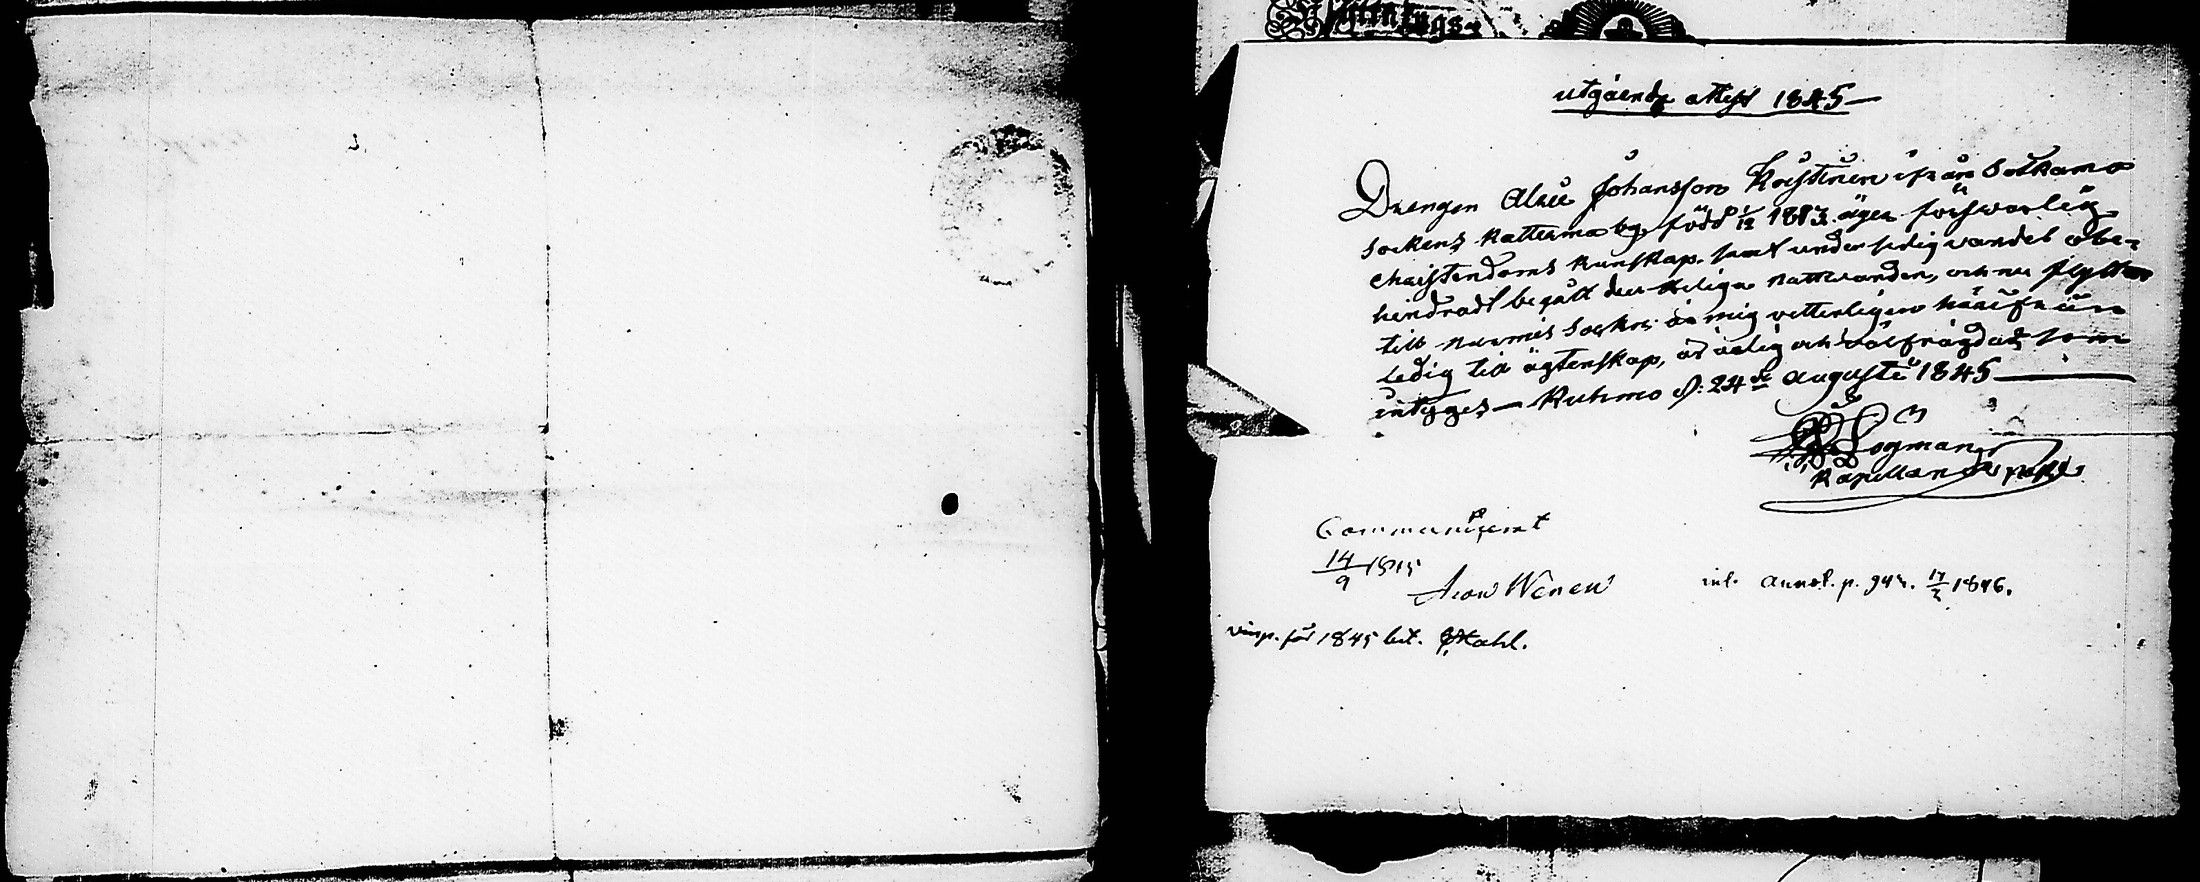 Flyttnings-
utgående attest 1845
Drengen Alric Johansson Kristinen ifrån Sotkamo
Sockens Katterma by, född 1/12 1813. äger förswarlig
Christendoms kunskap, samt under sedig vandel obe-
hindradt begått den Heliga Nattvarden, och nu flyttar
till Nurmis Sockn: är mig vetterligen häruifrån
ledig till ägtenskap, är ärlig och välfrägdad som
intyges Kuhmo d: 24de Augusti 1845
Logman
Kapellan
Communicerat
14/9 1845
Aron Wenell
int. annot. p. 942. 17/2 1846.
för 1845 bet. Stahl.